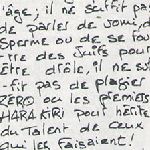 'âge, il ne suffit pas
de parler de vomi, d
sperme ou de se fou
tre des Juifs pour
être drôle, il ne su
-fit pas de plagier
ZERO ou les premiers
HARA KIRI pour hérite
du talent de ceux
qui les faisaient!